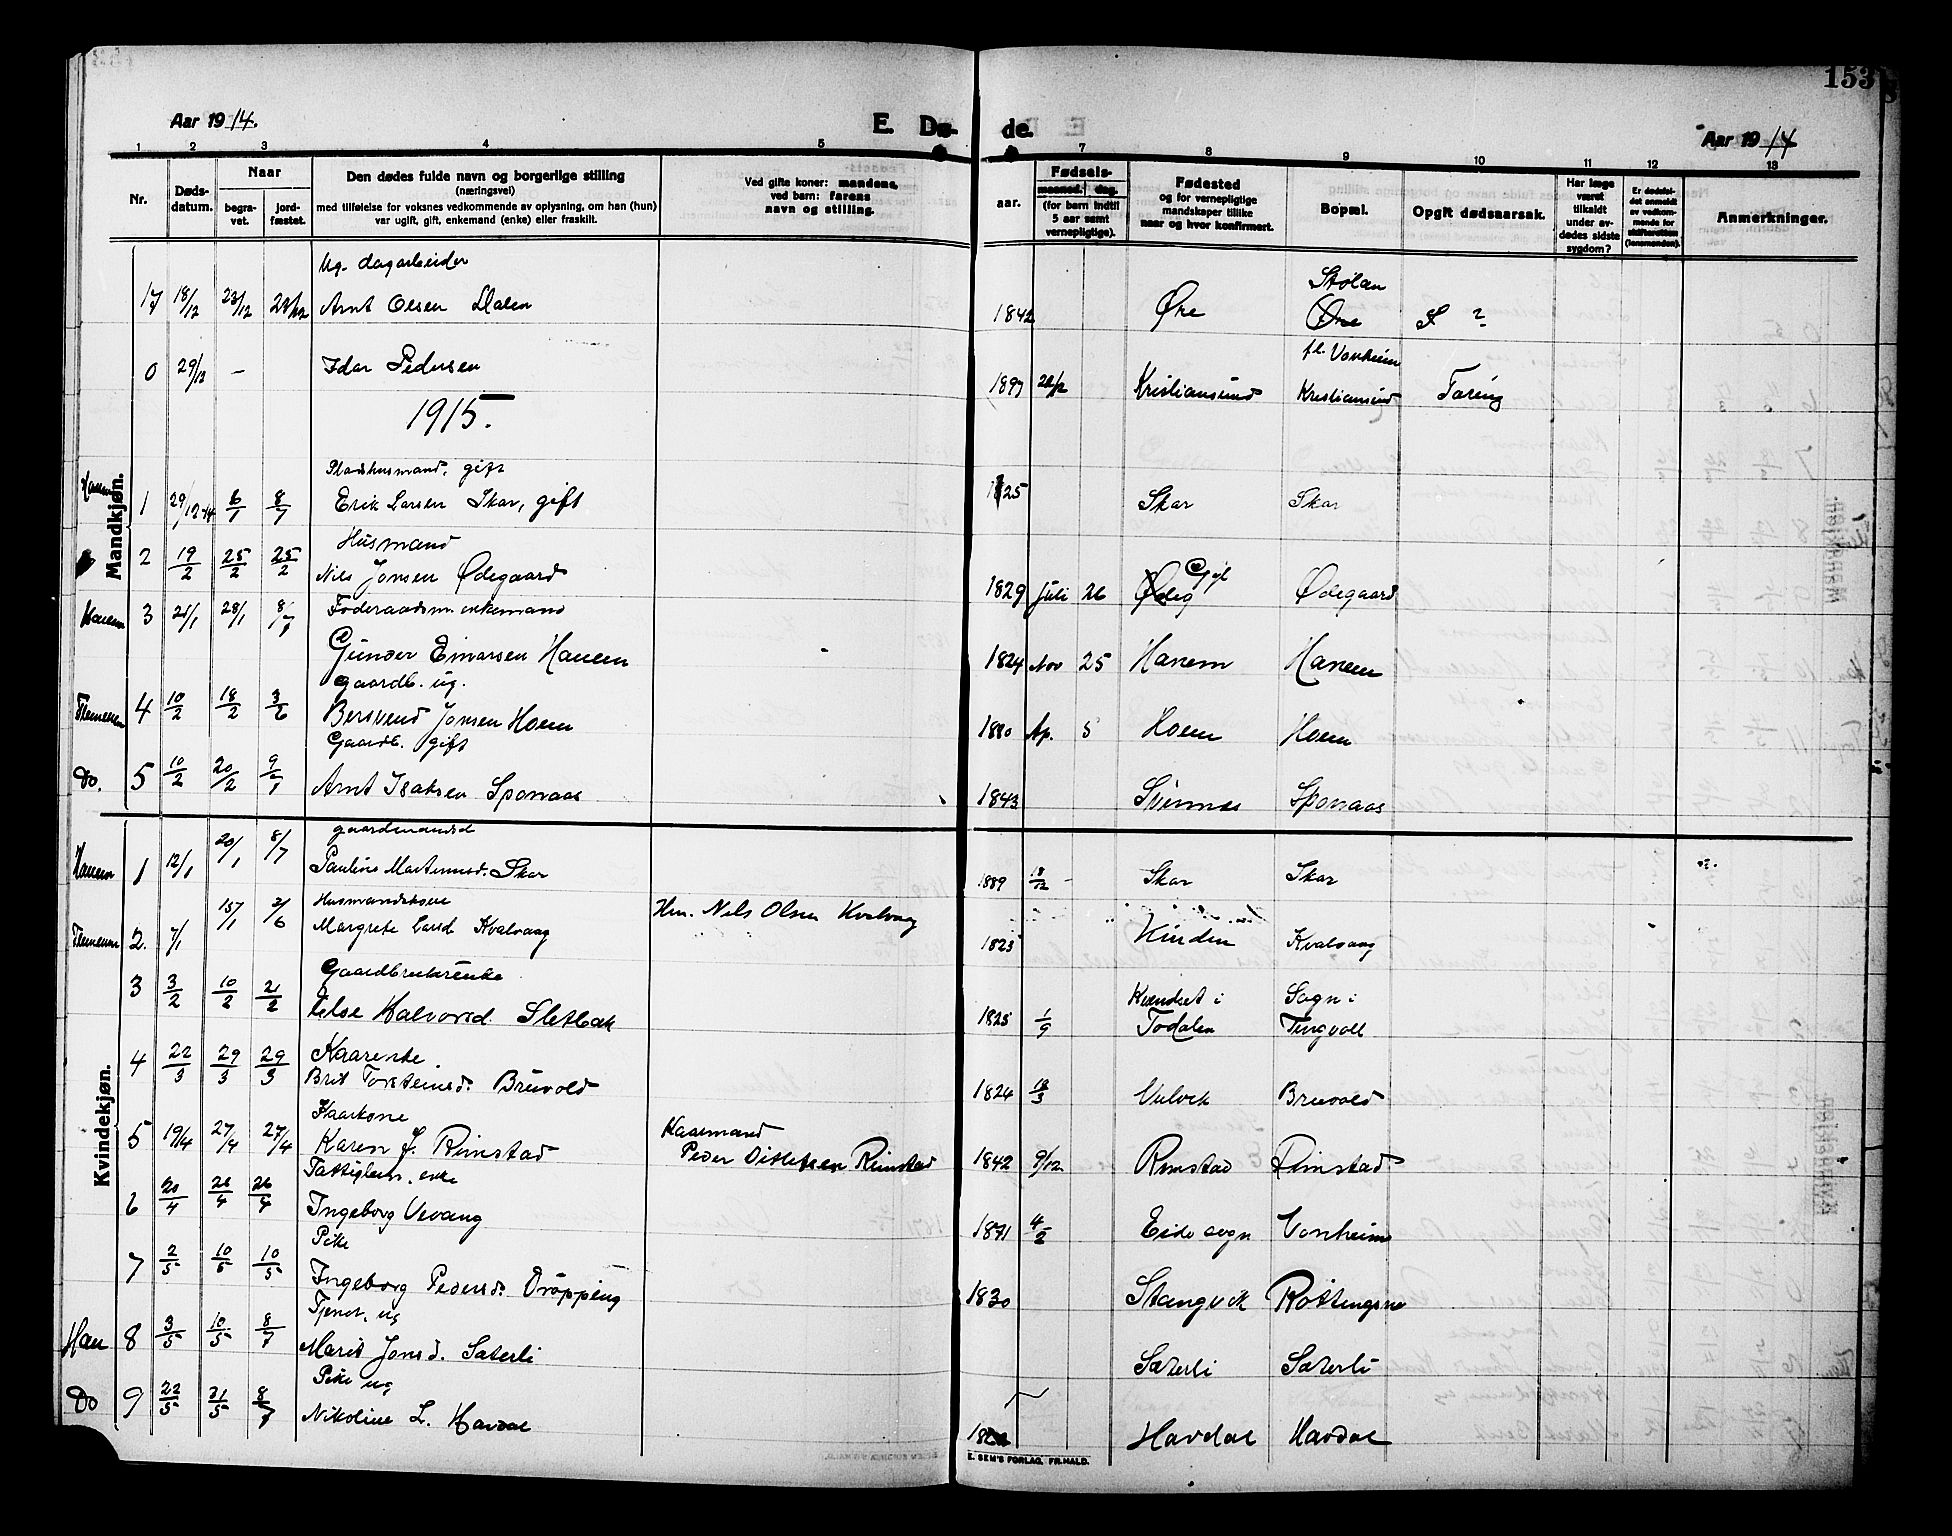 153
Aar 1914.
E. Dø- de.
Aar 1914
1 2 3 4 5 7 8 9 10 11 12 13
Nr.
Døds-datum.
Naar
begra-vet.
jord-fæstet.
Den dødes fulde navn og borgerlige stilling
(næringsvei)
med tilføielse for voksnes vedkommende av oplysning, om han (hun)
var ugift, gift, enkemand (enke) eller fraskilt.
Ved gifte koner: mandens,
ved barn: farens
navn og stilling.
Fødsels-
aar.
maaned. dag.
(for barn indtil
5 aar samt
vernepligtige).
Fødested
og for vernepligtige
mandskaper tillike
naar og hvor konfirmert.
Bopæl.
Opgit dødsaarsak.
Har læge
været
tilkaldt
under av-
dødes sidste
sygdom?
Er dødsfal-
det anmeldt
av vedkom-
mende for
skifteretten
(lensmanden).
Anmerkninger.
Mandkjøn.
Ug. dagarbeider
17 18/12 23/12 Arnt Olsen Dalen 1842 Øre Stølan Øre ?
0 29/12 – Idar Pedersen 1897 Kristiansund Kristiansund Tæring
1915.
Pladshusmand. gift
1 29/12-14 6/1 8/7 Erik Larsen Skar, gift 1825 Skar Skar
Husmand
2 19/2 25/2 25/2 Nils Jonsen Ødegaard 1829 Juli 26 Gjl Ødegaard
Hanem 3 21/1 28/1 8/7 Føderaadsm. enkemand
Gunder Einarsen Hanem 1824 Nov 25 Hanem Hanem
gaardb. ug.
4 10/2 18/2 3/6 Bersvend Jonsen Hoem 1880 Ap. 5 Hoem Hoem
Gaardb. gift
Do. 5 10/2 20/2 9/7 Arnt Isaksen Sponaas 1843 Sponaas
Kvindekjøn.
gaardmandsd
Hanem 1 12/1 20/1 8/7 Pauline Martinusd. Skar 1889 18/12 – Skar Skar
Husmandskone
2. 7/1 15/1 2/6 Margrete Larsd Kvalvaag Hm. Nils Olsen Kvalvaag 1823 Hinden Kvalvaag
Gaardbrukerenke
3 3/2 10/2 21/2 Else Halvorsd. Sletbak 1825 1/9 Kvendset i Todalen Sogn i Tingvoll
Kaarenke
4 22/3 29/3 29/3 Brit Torsteinsd. Bruvold 1824 18/3 Vulvik Bruvold
Kaarkone
5 19/4 27/4 27/4 Karen J. Rimstad Kaarmand Peder Ditlefsen Rimstad 1842 9/12 Rimstad Rimstad
Fattiglem, enke
6 20/4 26/4 26/4 Ingeborg Vevang 1871 4/2 Eide sogn Vonheim
Pike
7 2/5 10/5 10/5 Ingeborg Pedersd. Drøpping 1830 Stangvik
Tjenest. ug
Han 8 3/5 10/5 8/7 Marit Jonsd. Sæterli Sæterli Sæterli
Pike ug
Do 9 22/5 31/5 8/7 Nikoline L. Havdal Havdal Havdal
E. SEM'S FORLAG. FR.HALD.